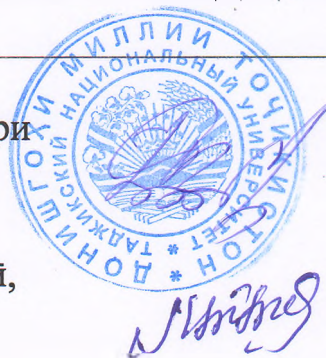 ри
ДОНИШГОҲИ МИЛЛИИ ТОҶИКИСТОН *
ТАДЖИКСКИЙ НАЦИОНАЛЬНЫЙ УНИВЕРСИТЕТ *
й,